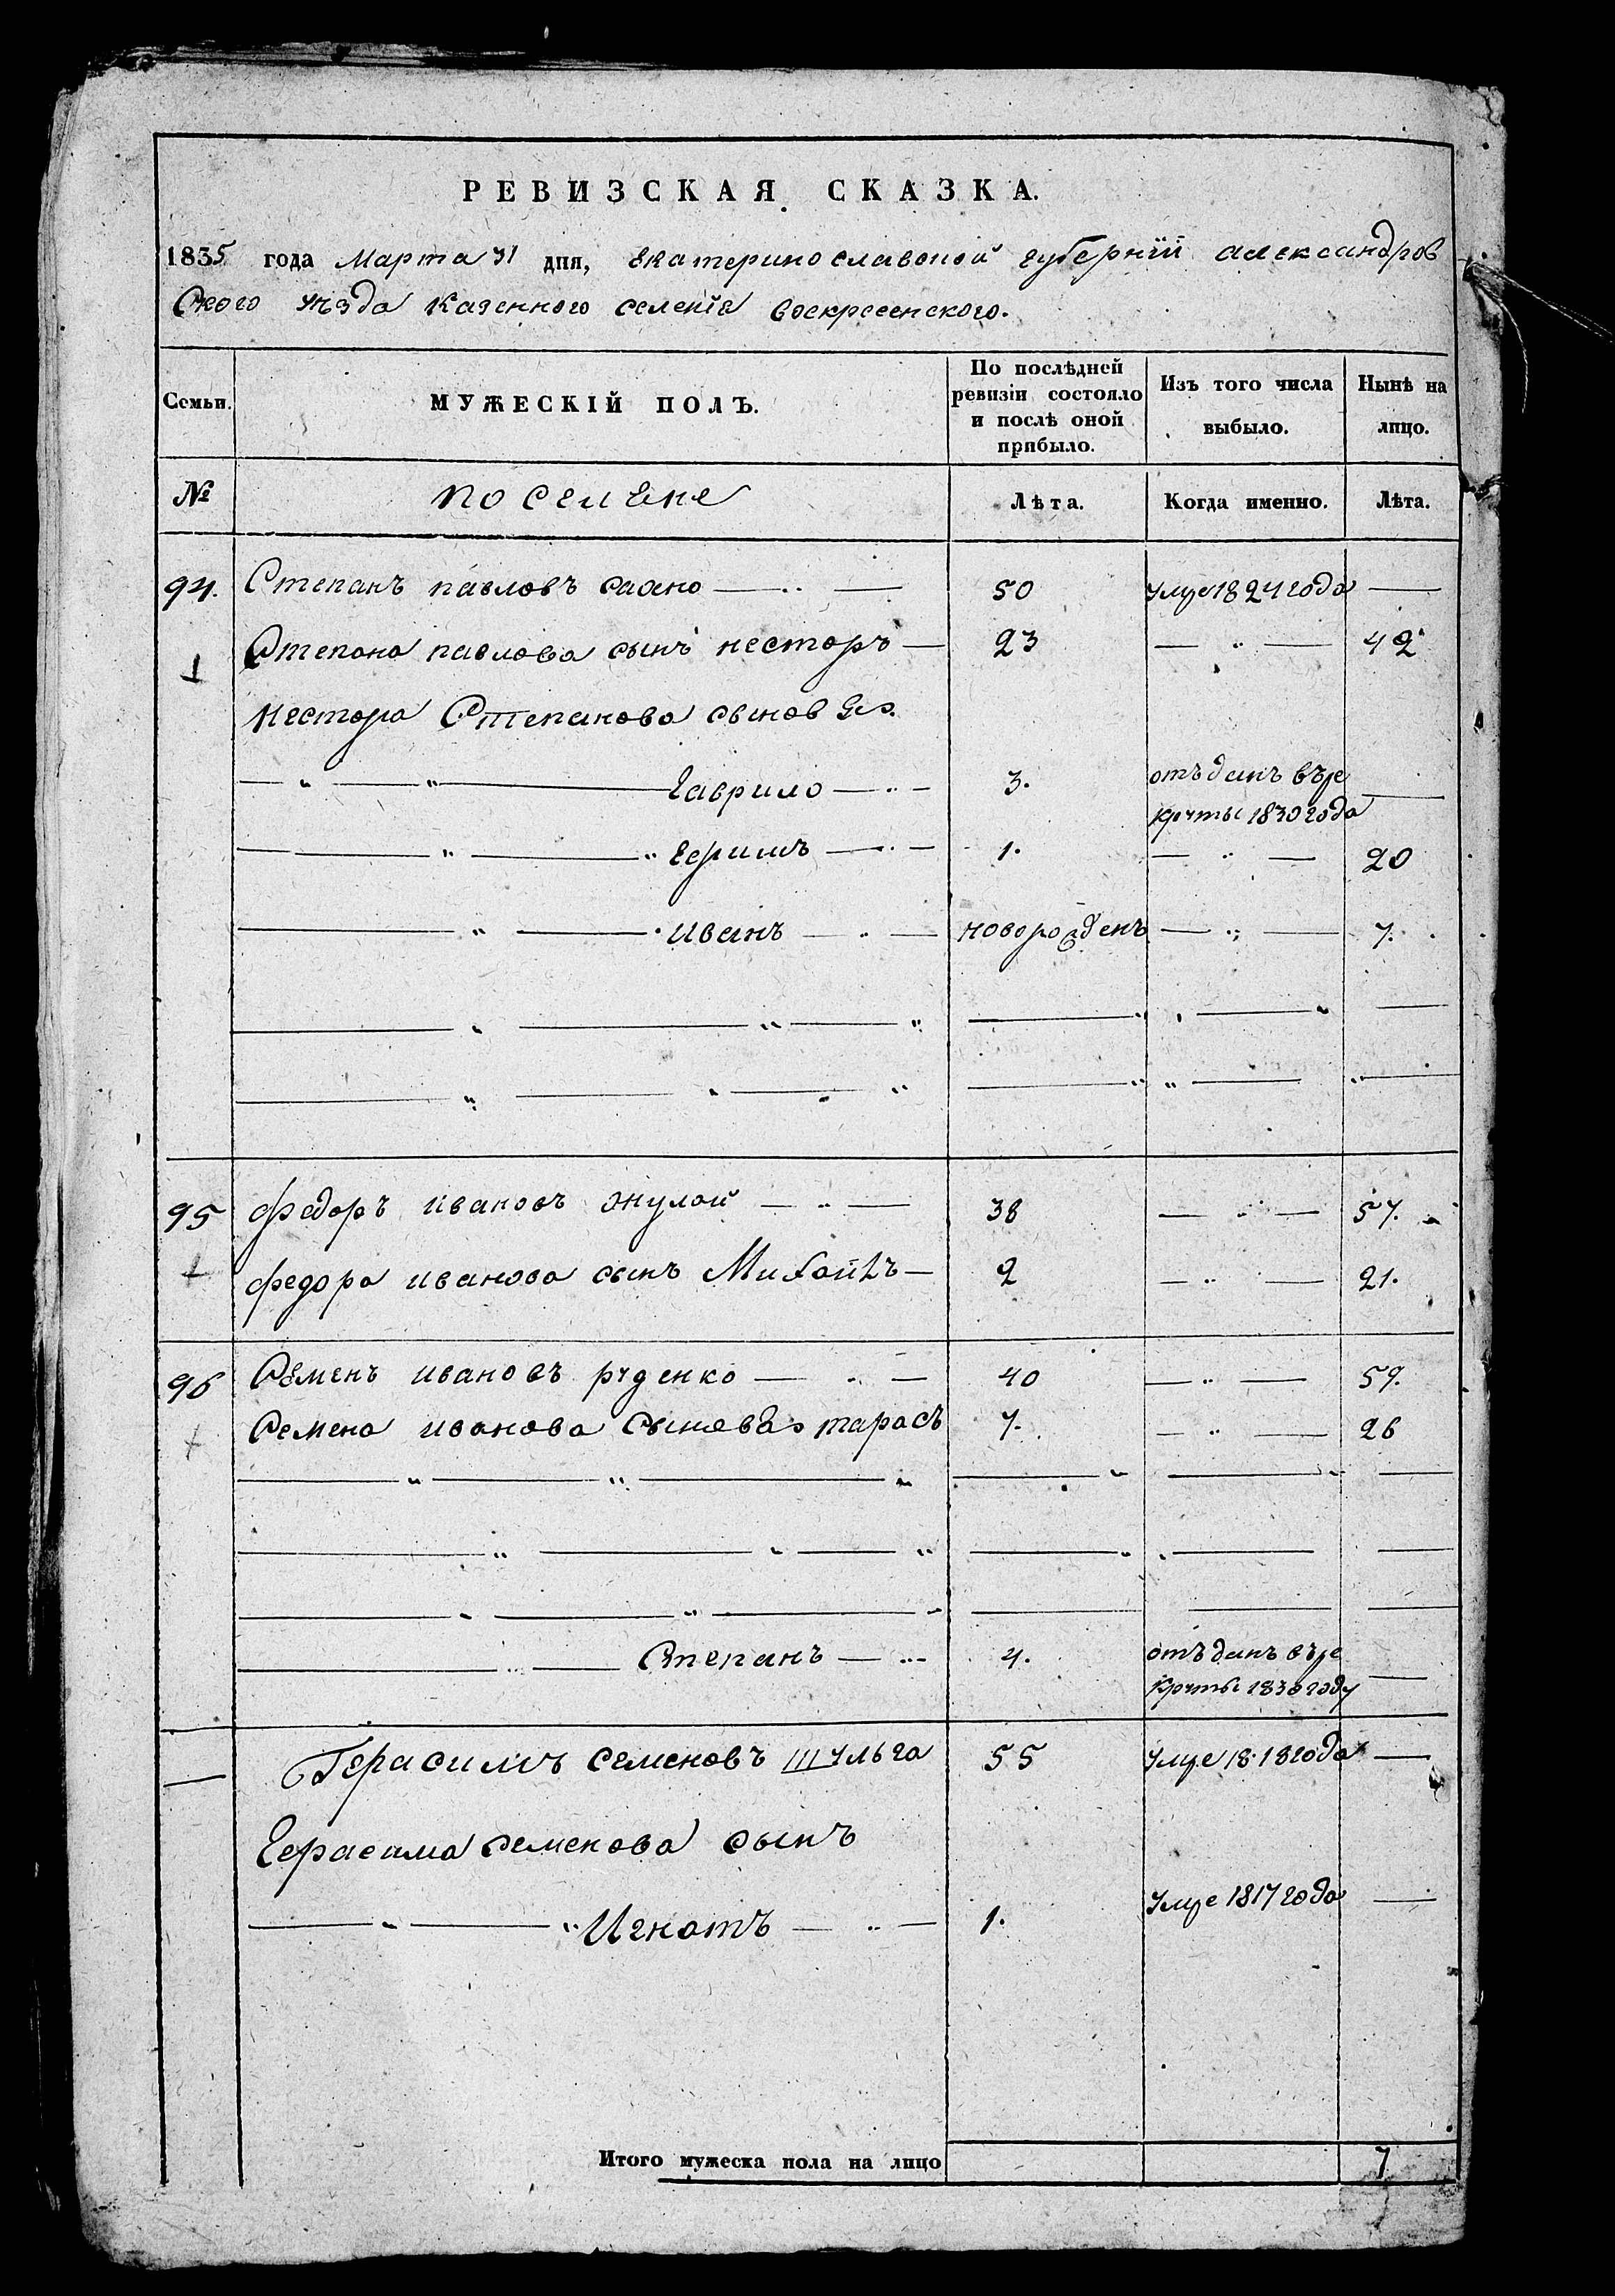 РЕВИЗСКАЯ СКАЗКА.
1835 года Марта 31 дня, Екатеринославской губернїй александров
Ского уезда Казенного селенїя воскресенского.
Семьи.
МУЖЕСКІЙ ПОЛЪ.
По послѣдней ревизіи состояло и послѣ оной прибыло.
Изъ того числа выбыло.
Нынѣ на лицо.
№
Лѣта.
Когда именно.
Лѣта.
94. Степанъ павловъ сахно 50 умре 1824 года
Степана павлова сынъ несторъ 23 42
Нестора Степанова сынов
Гаврило 3. отъданъ въре
круты 1830 года
1. 20
иванъ новорожденъ 7.
95 федоръ ивановъ 38 57.
федора иванова сынъ Михайлъ 2 21.
96 Семенъ ивановъ руденко 40 59.
Семена иванова Сыновья тарасъ 7. 26
Степанъ 4. отъданъ въре
круты 1830 году
Герасимъ семеновъ шульга 55 умре 1818 года
Герасима семенова сынъ
Игнатъ 1. умре 1817 года
Итого мужеска пола на лицо 7